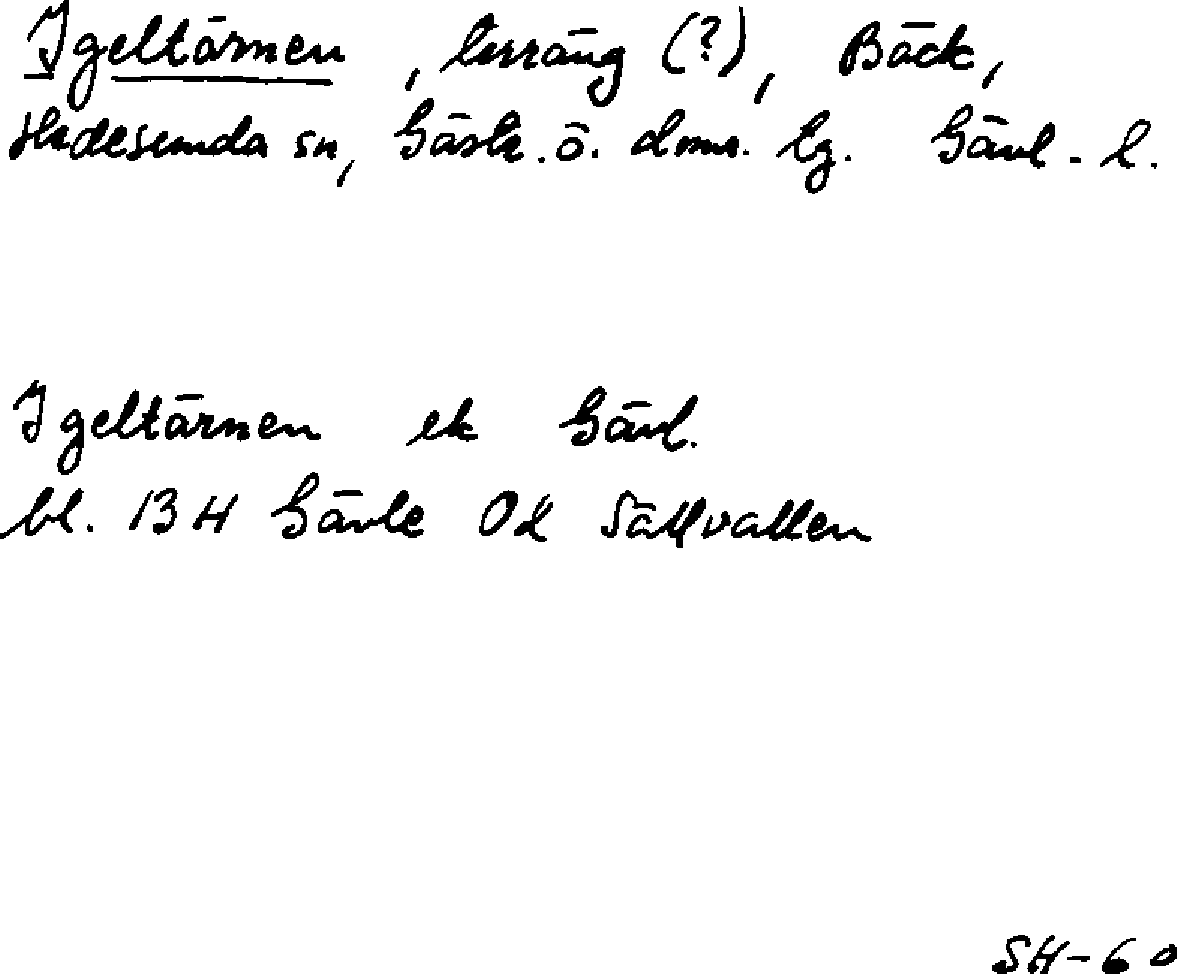 Igeltärnen, terräng (?), Bäck,
Hedesunda sn, Gästr. ö. doms. lg. Gävl. l.
Igeltärnen ek Gävl.
bl. 13 H Gävle 0d Sällvallen
SH-60